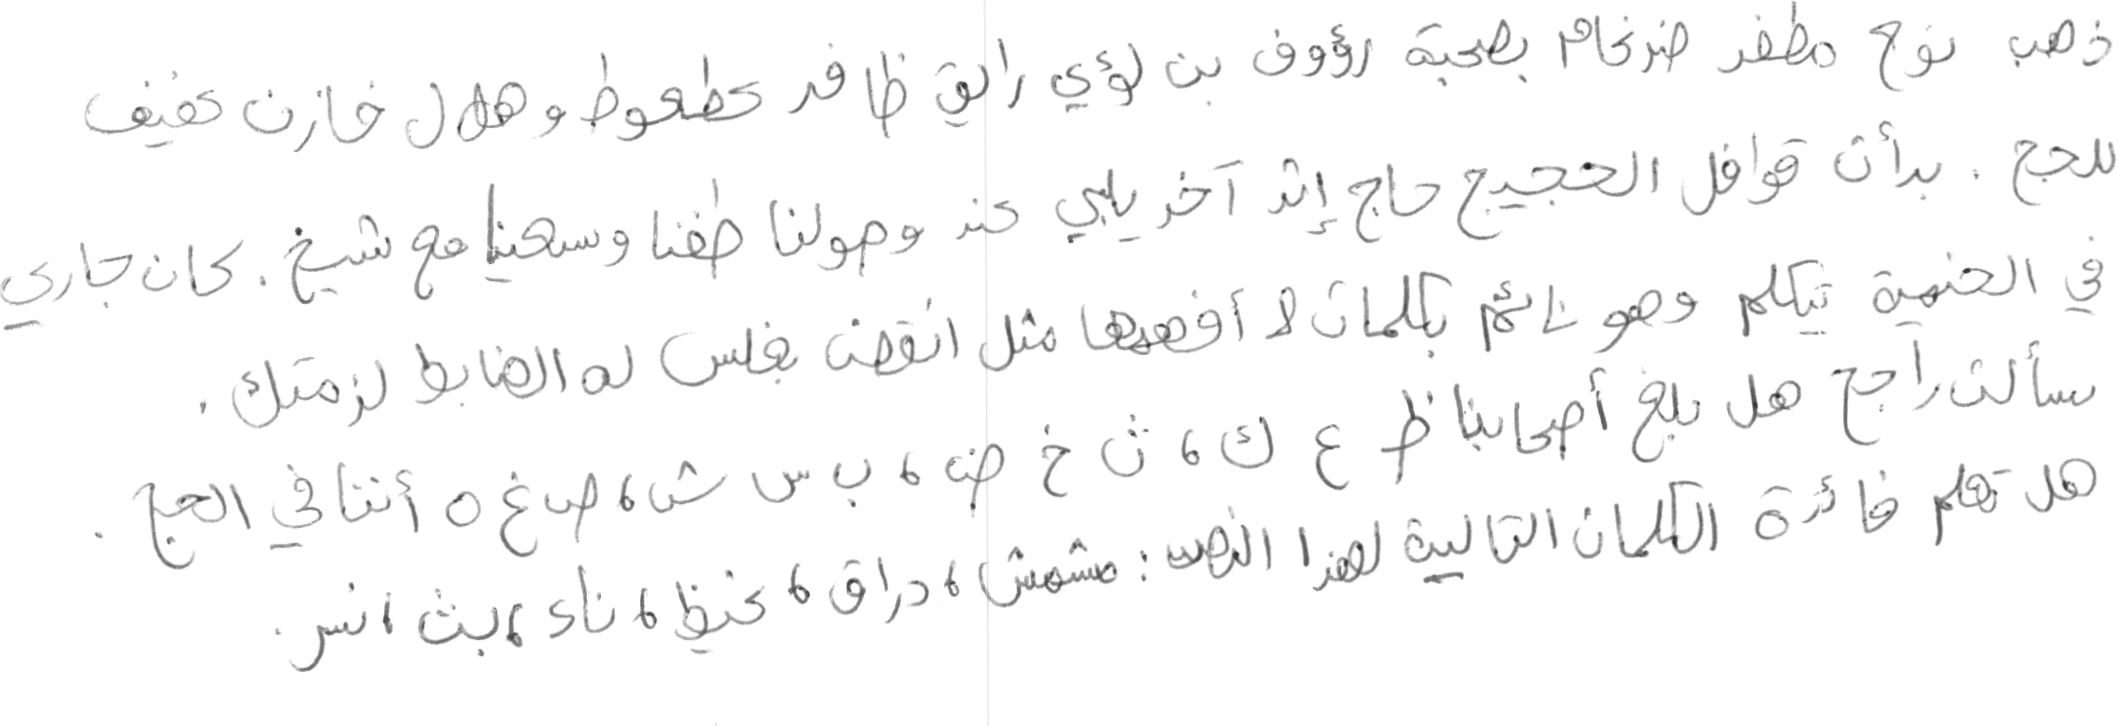 ذهب نوح مظفر ضرغام بصحبة رؤوف بن لؤي رائق ظافر عطعوط وهلال خازن عفيف
للحج . بدأت قوافل الحجيج حاج إثر آخر يلبي عند وصولنا طفنا وسعينا مع شيخ . كان جاري
في الخيمة يتكلم وهو نائم بكلمات لا أفهمها مثل انقض بغلس له الضابط لزمتك .
سألت راجح هل بلغ أصحابنا ظ ع ك ، ث خ ض ، ب س ش ، ص غ ه أننا في الحج .
هل تعلم فائدة الكلمات التالية لهذا النص : مشمش ، دراق ، غيظ ، ناء ، بث ، نس .